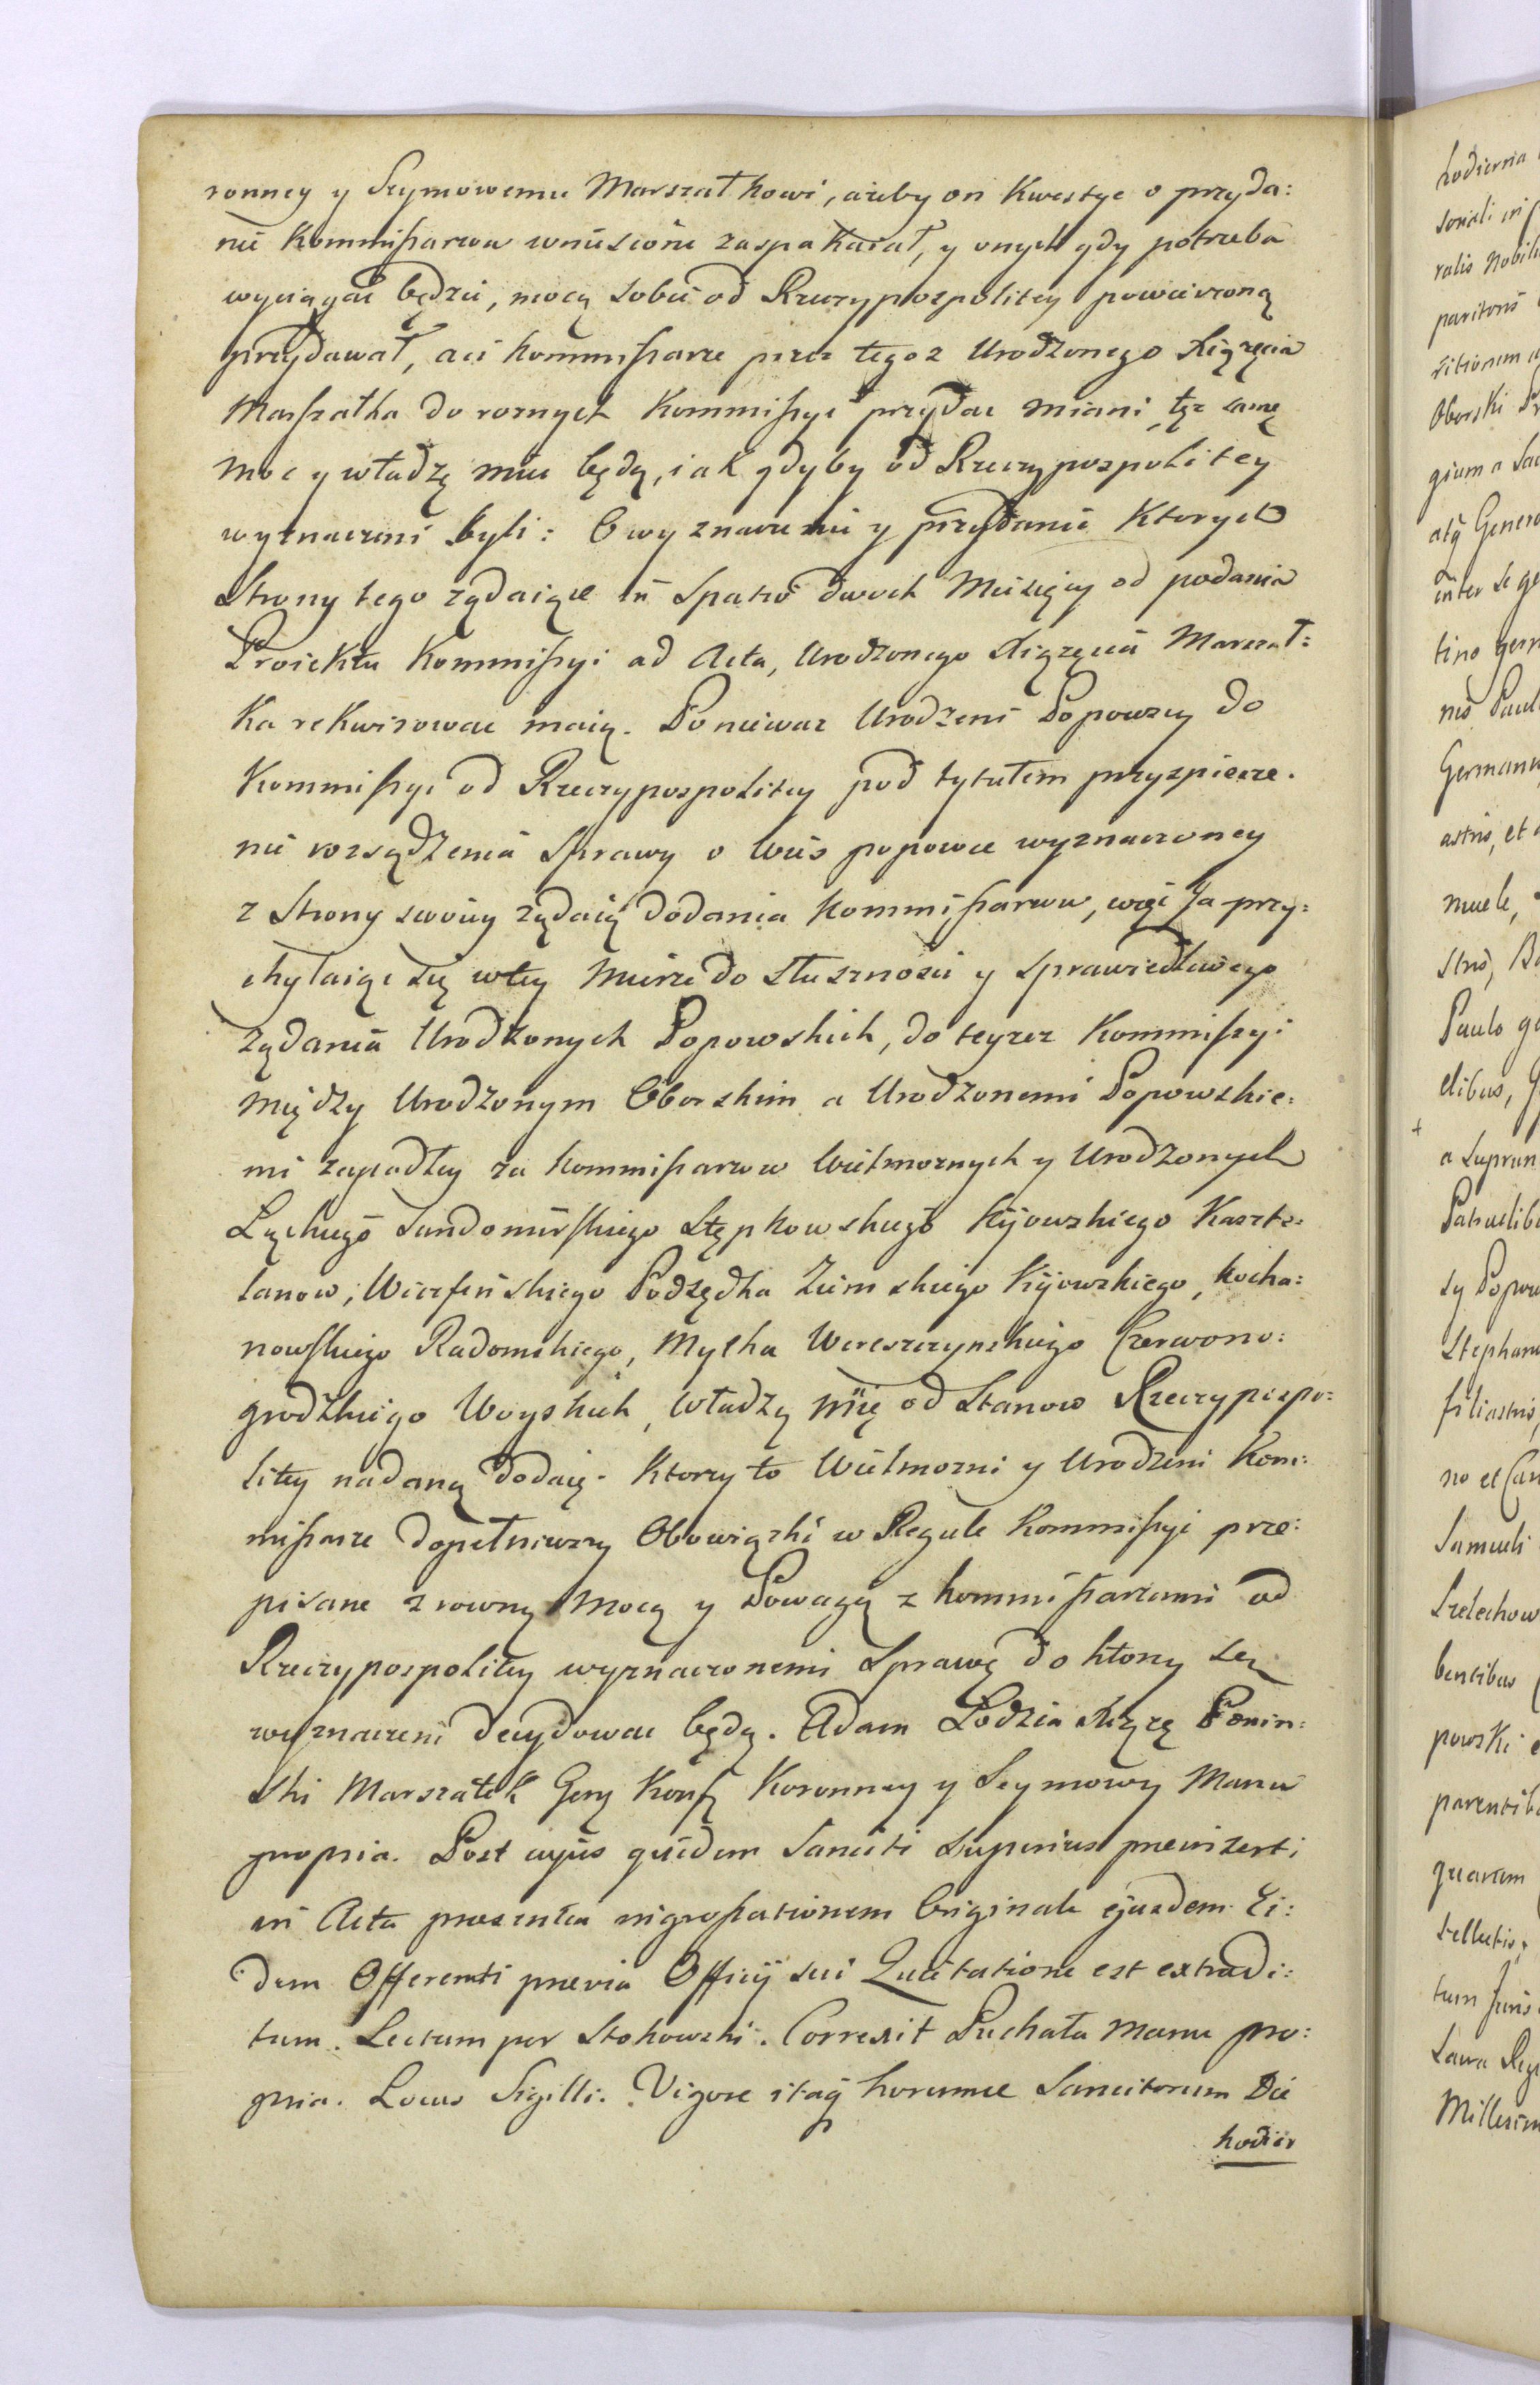 ronney y Seymowemu Marszałkowi, ażeby on kwestye o przyda:
nie Kommissarzow wniesione zaspakaiał, y onych gdy potrzeba
wyciągac będzie, mocą sobie od Rzeczypospolitey powierzoną
przydawał, a ci Kommissarze przez tegoz Urodzonego Xiązęcia
Marszałka do roznych Kommissyi przydac miani, tęz samę
moc y władzę miec będą, iak gdyby od Rzeczypospolitey
wyznaczeni byli: O wyznaczenie y przydanie ktorych
Strony tego ządaiące in Spatio dwoch Miesięcy od podania
Proiektu Kommissyi ad Acta, Urodzonego Xiązęcia Marszał:
ka rekwirowac maią. Poniewaz Urodzeni Popowscy do
Kommissyi od Rzeczypospolitey pod tytułem przyspiesze.
nie rozsądzenia Sprawy o Wies popowce wyznaczoney
z Strony swoiey ządaią dodania Kommissarzow, więc Ja przy:
chylaiąc się w tey Mierze do słusznosci y sprawiedliwego
ządania Urodzonych Popowskich, do teyzez Kommissyi
między Urodzonym Oborskim a Urodzonemi Popowskie:
mi zapadłey za Kommissarzow Wielmoznych y Urodzonych
Lęckiego Sandomirskiego Stępkowskiego Kijowskiego Kaszte:
lanow, Podsędka Ziemskiego Kijowskiego, Kocha:
nowskiego Radomskiego, Myłka Wereszczynskiego Czerwono:
grodzkiego Woyskich, władzą mię od Stanow Rzeczypospo:
litey nadaną dodaię. Ktorzy to Wielmozni y Urodzeni Kom:
missarze dopełniwszy Obowiązki w Regule Kommissyi prze:
pisane z rowną Mocą y Powagą z Kommissarzami od
Rzeczypospolitey wyznaczonemi Sprawę do ktorey są
wyznaczeni decydowac będą. Adam Łodzia Xiąze Ponin:
ski Marszałek Gený Konfý Koronney y Seymowy Manu
propria. Post cujus quidem Sanciti superius preinserti
in Acta presentia ingrossationem Originale ejusdem Ei:
dem Offerenti previa Officij sui Quietatione est extradi:
tum. Lectum per Stokowski. Correxit Puchała manu pro:
pria. Locus Sigilli. Vigore itaq̃ horumce Sancitorum Die
hodier
hodierna
soriali in
ralis Nobili
paritoris
sitionem
Oborski
gium a
atq̃ Genero
inter se ge
tino germ
nis Paul
Germanu
astris, et
muele,
stris, Ba
Paulo ge
elibus,
a Suprem
Patruelib
sy Popow
Stephan
filiastris,
no et Can
Samueli
Szelechow
bentibus
powski e
parentib
quarum
tellectis,
tum Juris
Sacra Reg
Millesim